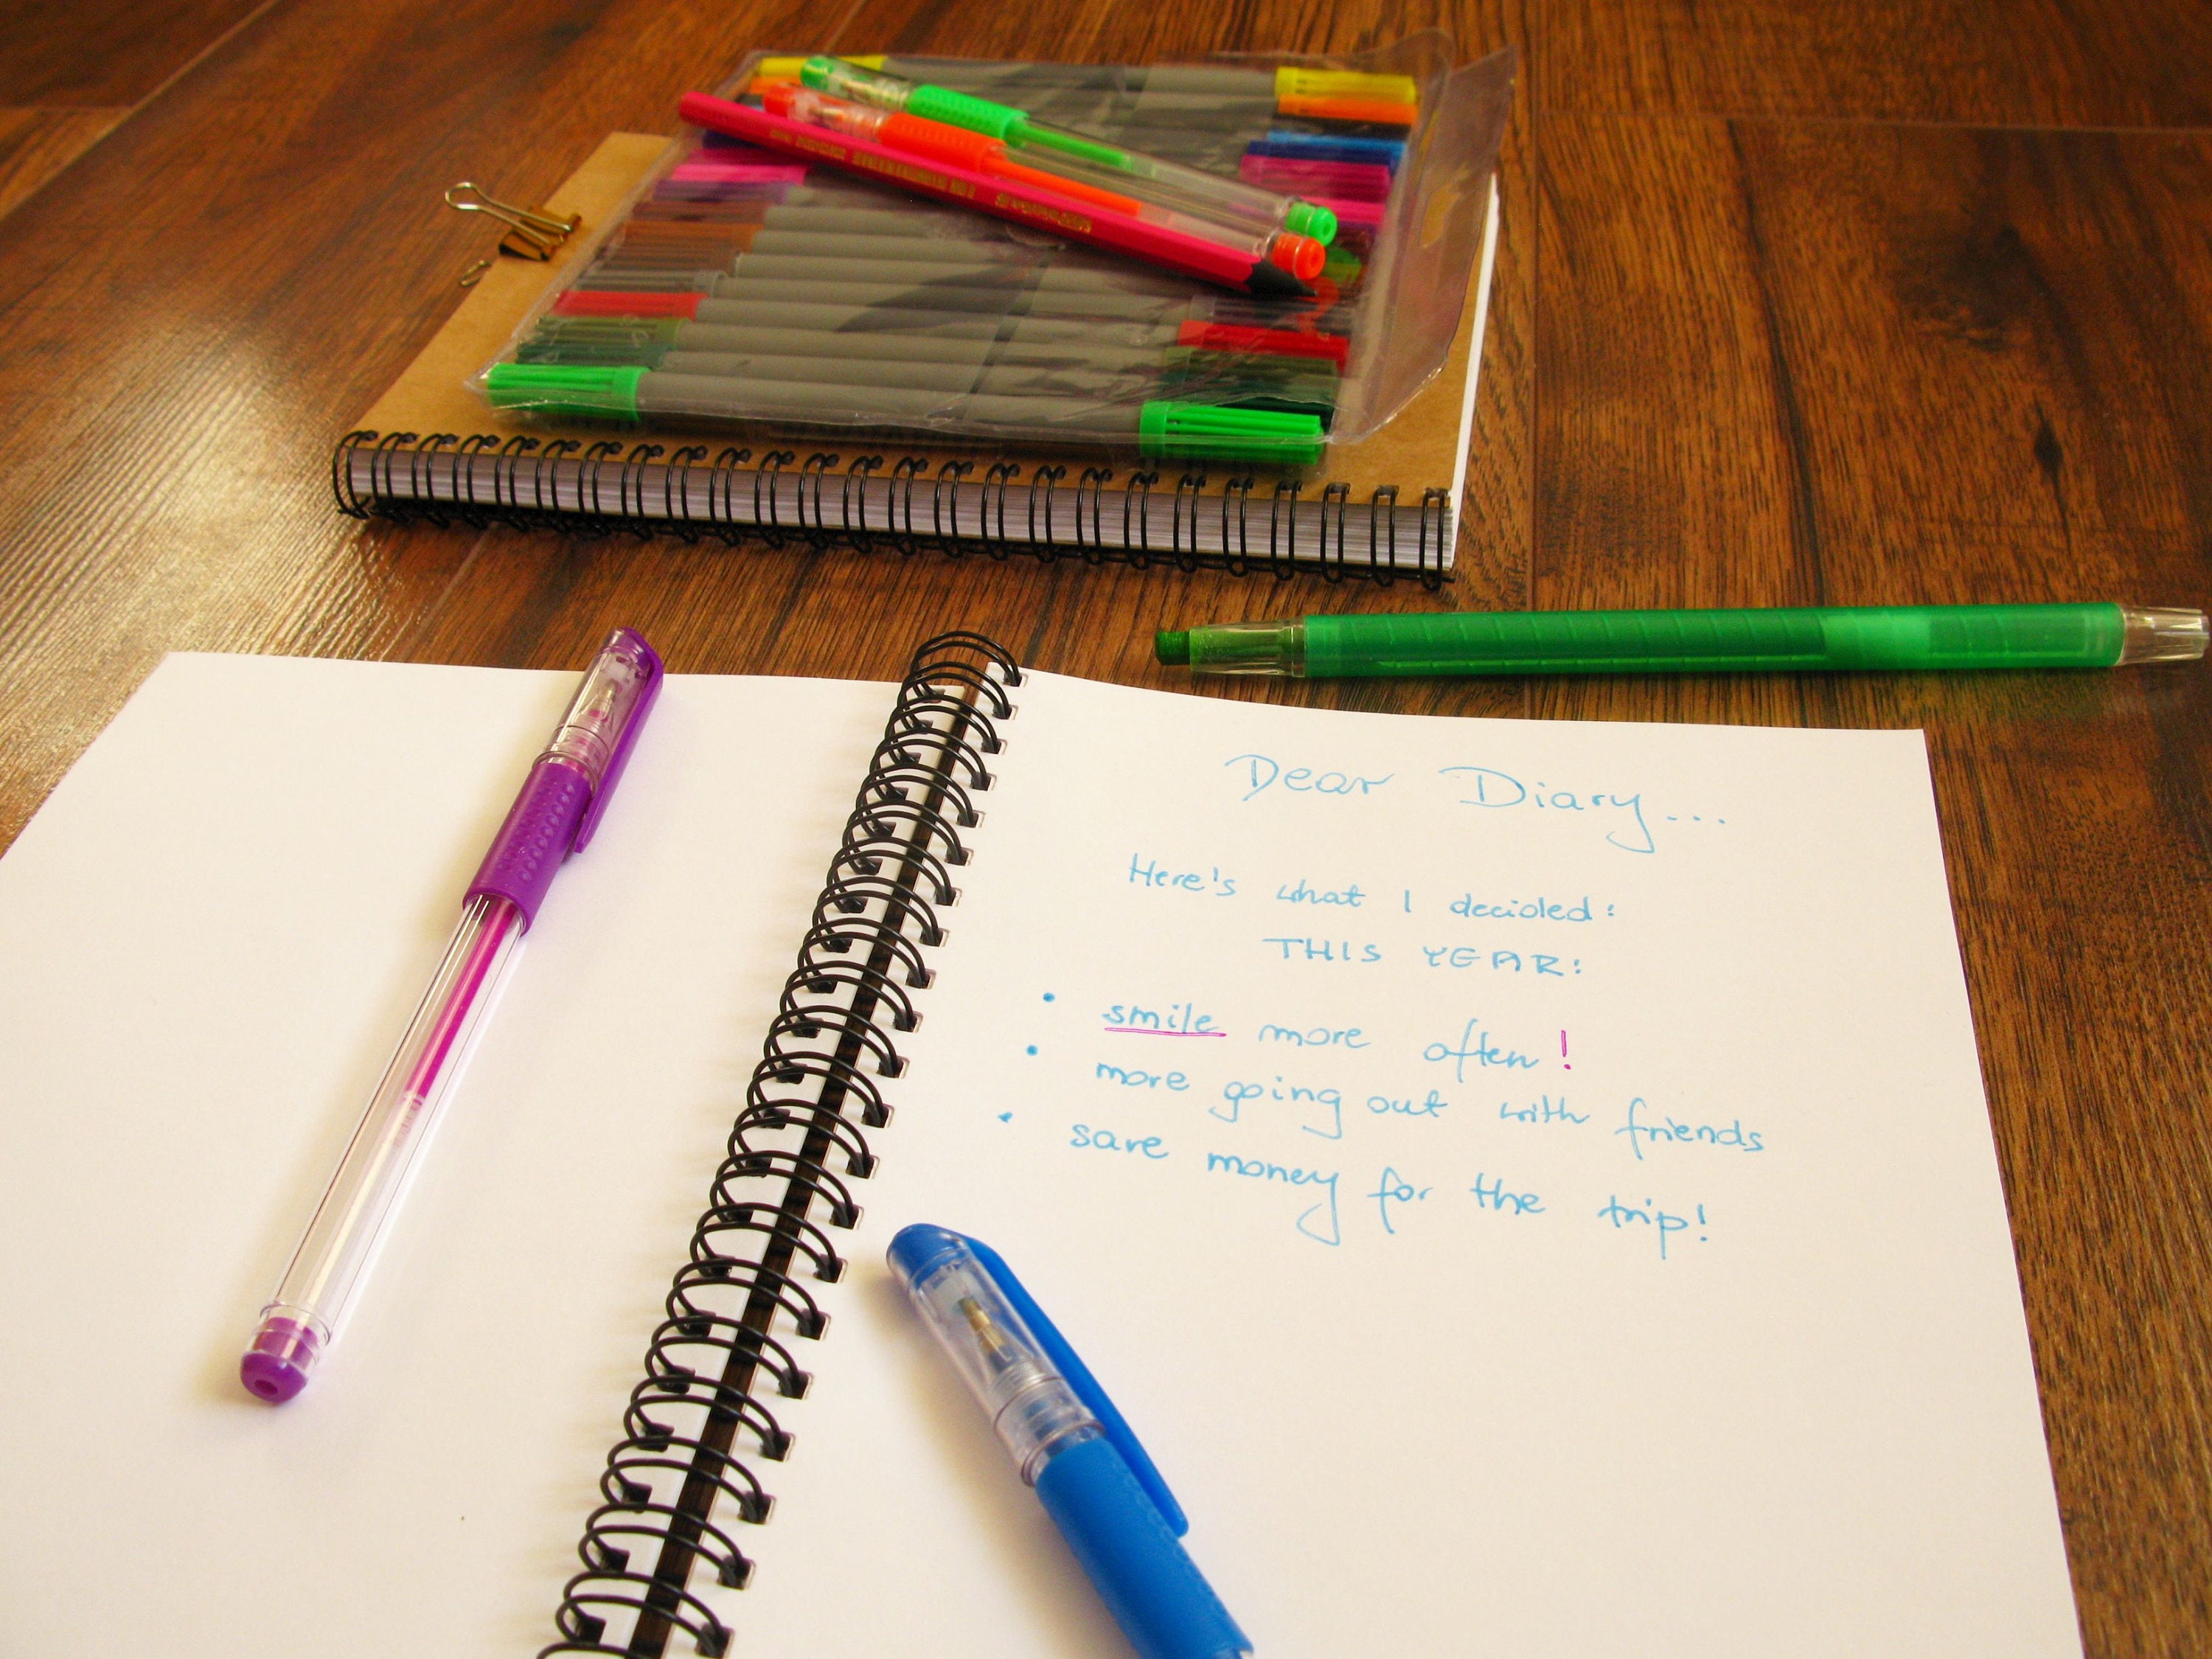 Dear Diary...
Here's what I decided:
THIS YEAR:
• smile more often!
• more going out with friends
• save money for the trip!